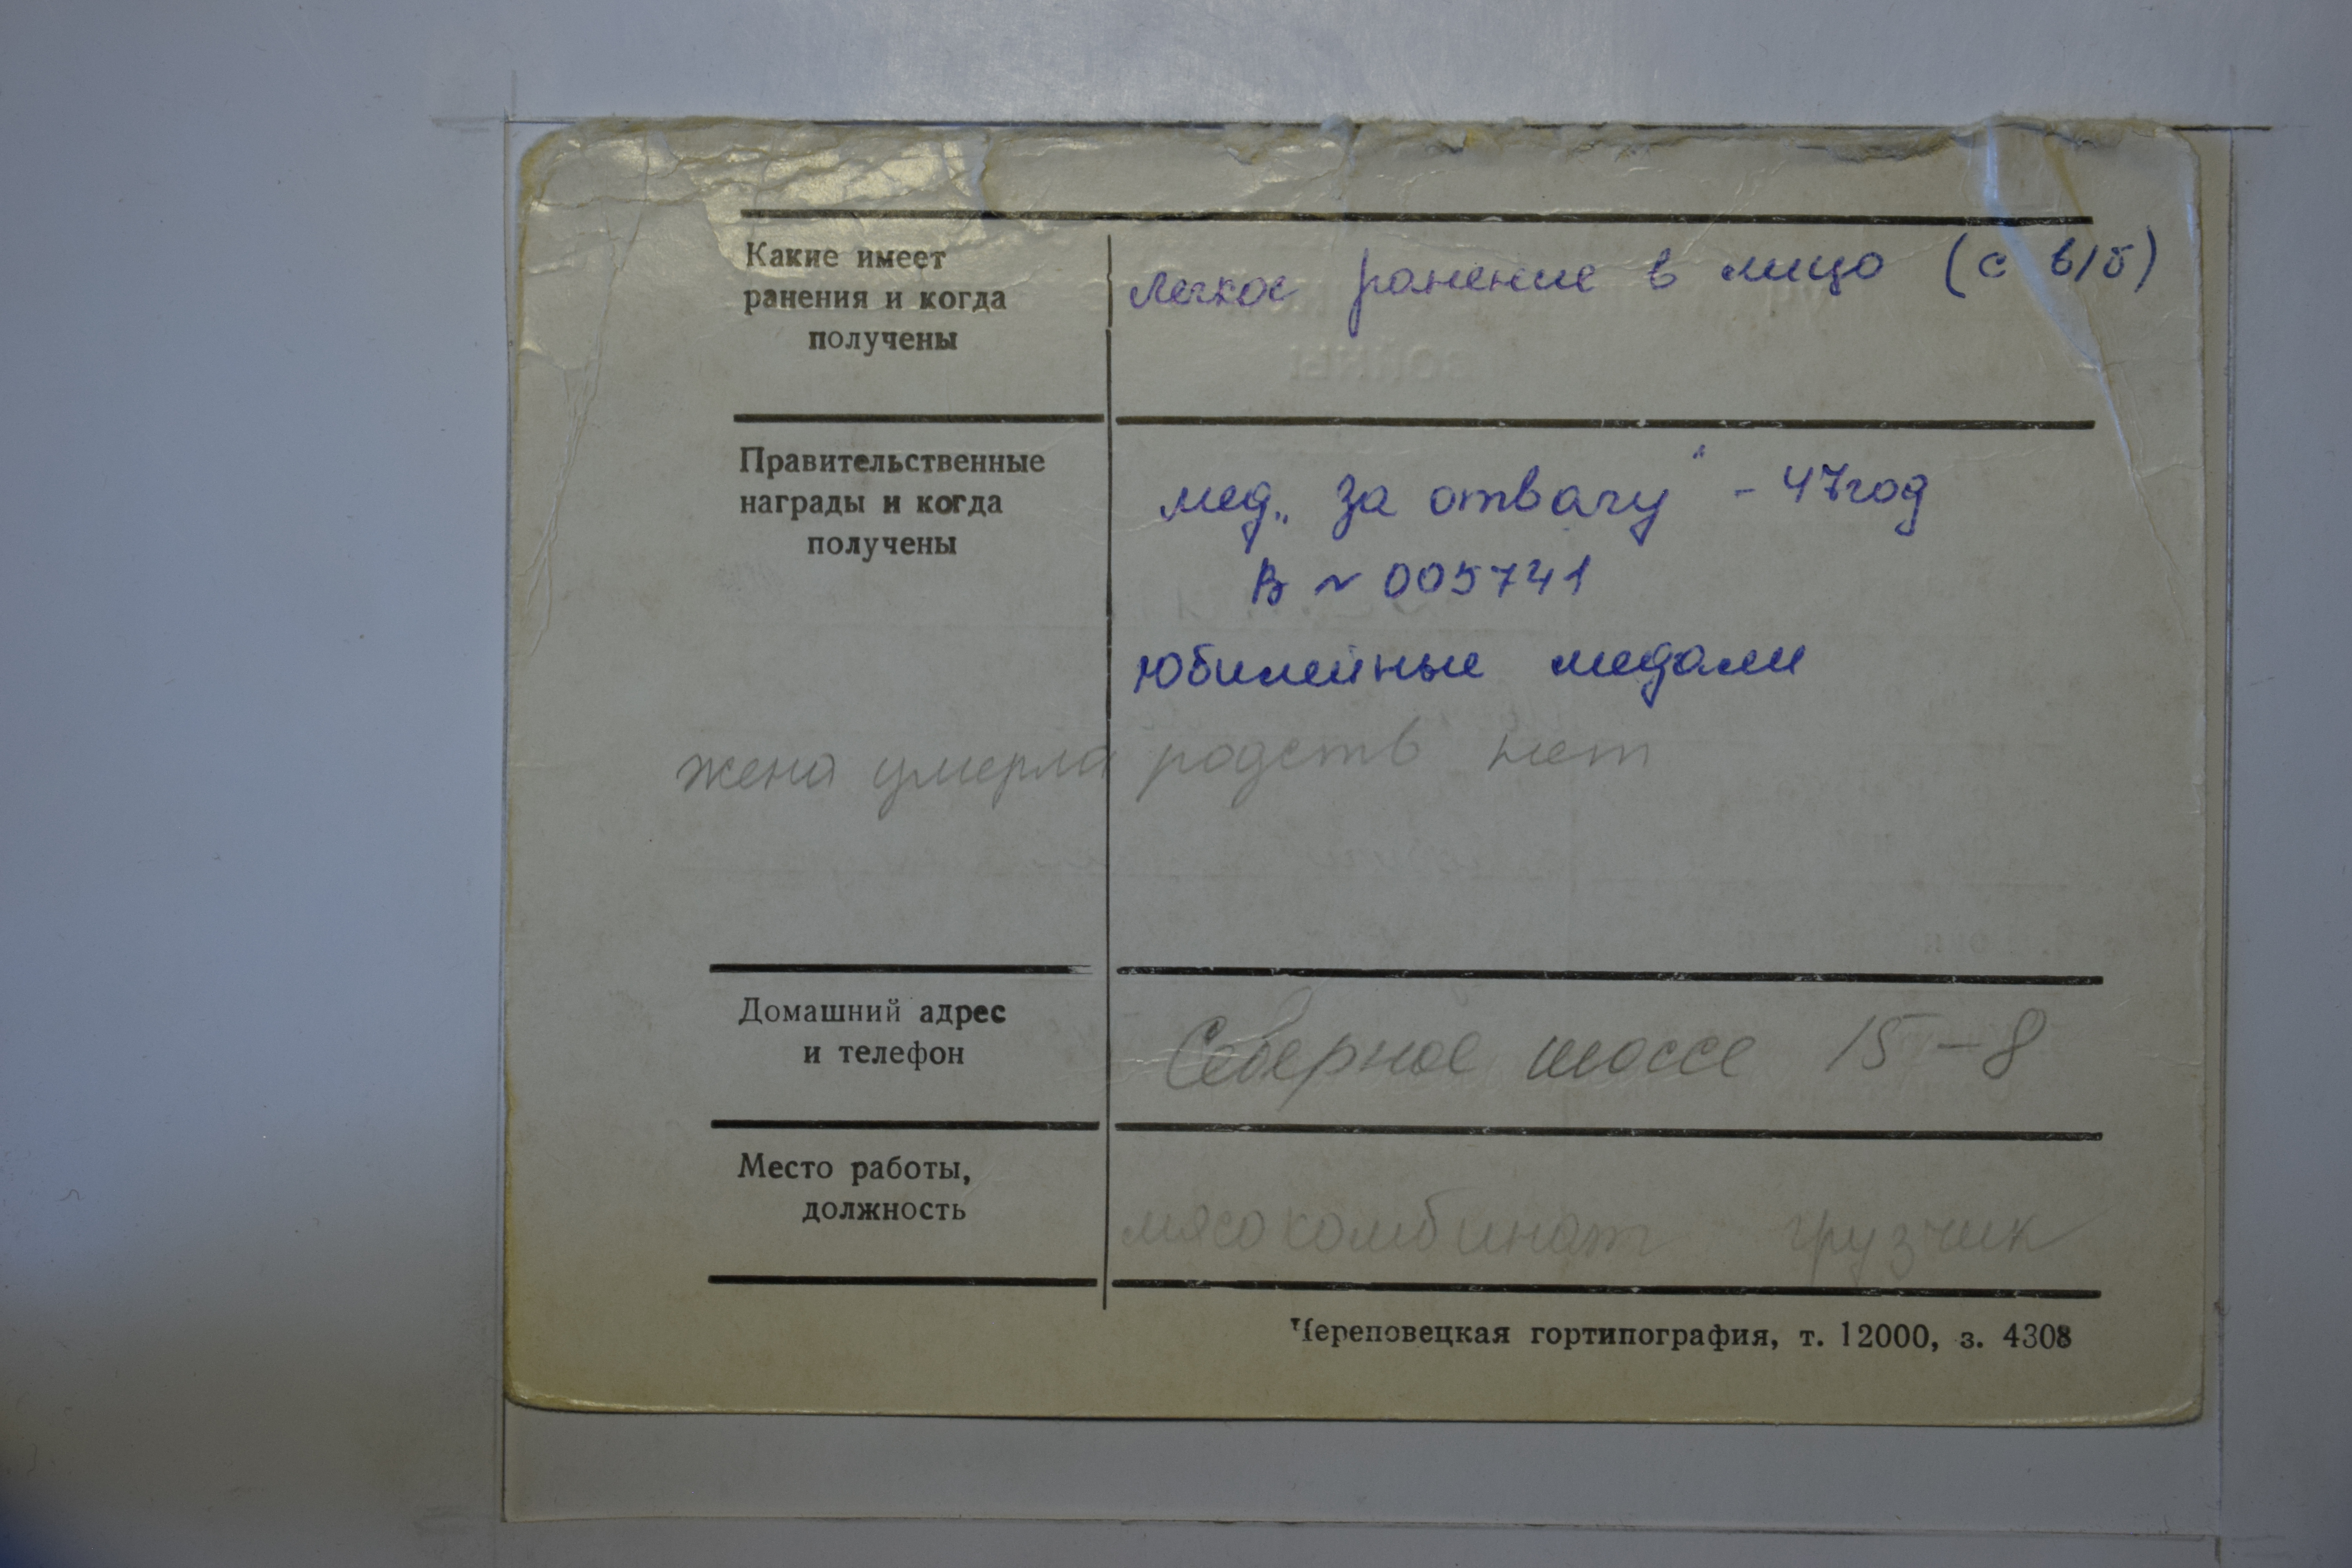 Какие имеет
ранения и когда
получены
легкое ранение в лицо (с в/б)
Правительственные
награды и когда
получены
мед. „за отвагу" - 47 год
В № 005741
юбилейные медали
жена умерла родств нет
Домашний адрес
и телефон
Северное шоссе 15-8
Место работы,
должность
мясокомбинат грузчик
Череповецкая гортипография, т. 12000, з. 4308